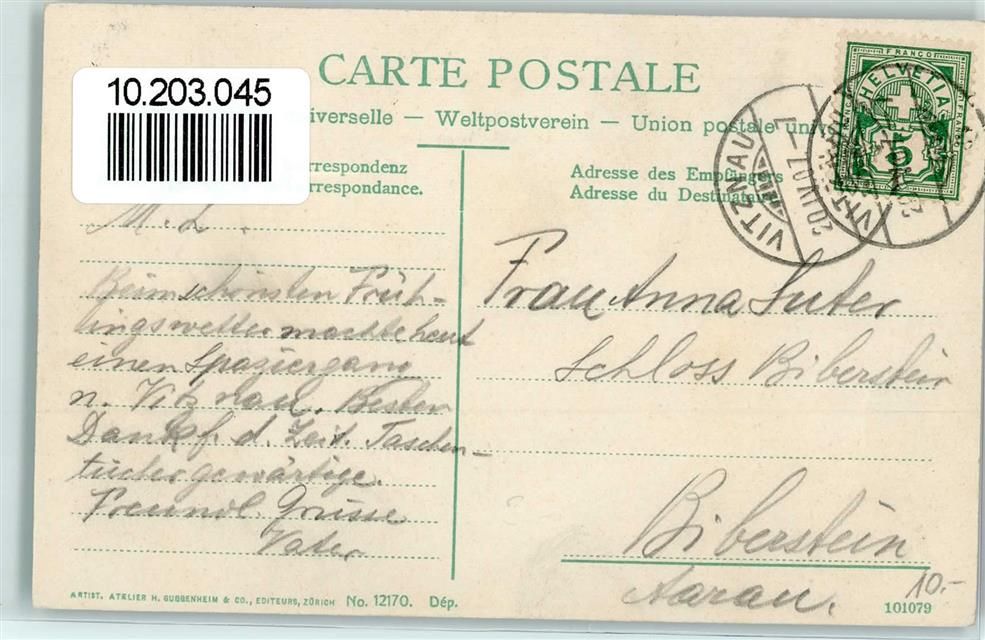 CARTE POSTALE
10.203.045
iverselle — Weltpostverein — Union postale univ
FRANCO
HELVETIA
5
VITZNAU
rrespondenz
rrespondance.
Adresse des Empfängers
Adresse du Destinataire
M. L.
Beim schönsten Früh-
lingswetter machte heut
einen Spaziergang
n. Vitznau. Besten
Dank f. d. Zeit. Taschen-
tücher gewärtige.
Freundl. Grüsse
Vater
Frau Anna Suter
Schloss Biberstein
Biberstein
Aarau.
10.-
ARTIST. ATELIER H. GUGGENHEIM & CO., EDITEURS, ZÜRICH No. 12170. Dép.
101079